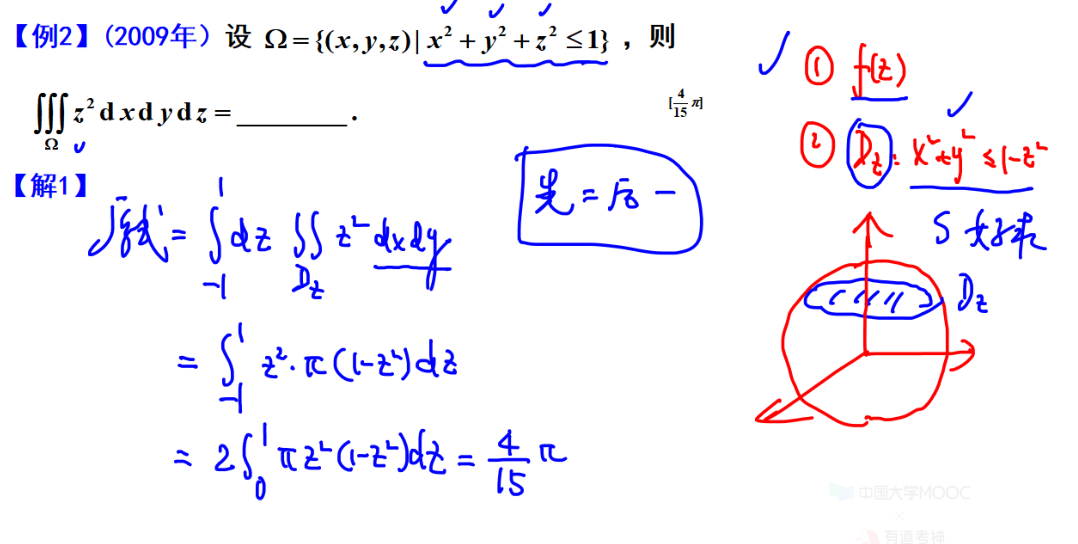 【例2】(2009年) 设 Ω={(x,y,z)| x²+y²+z²≤1} ，则
∭_Ω z² dxdydz = ________ .
[4/15 π]
【解1】
原式 = ∫_{-1}^{1} dz ∬_{D_z} z² dxdy
= ∫_{-1}^{1} z²·π(1-z²)dz
= 2∫_0^1 πz²(1-z²)dz = 4/15 π
先二后一
① f(z)
② D_z: x²+y²≤1-z²
S 好求
D_z
中国大学MOOC
×
有道考神